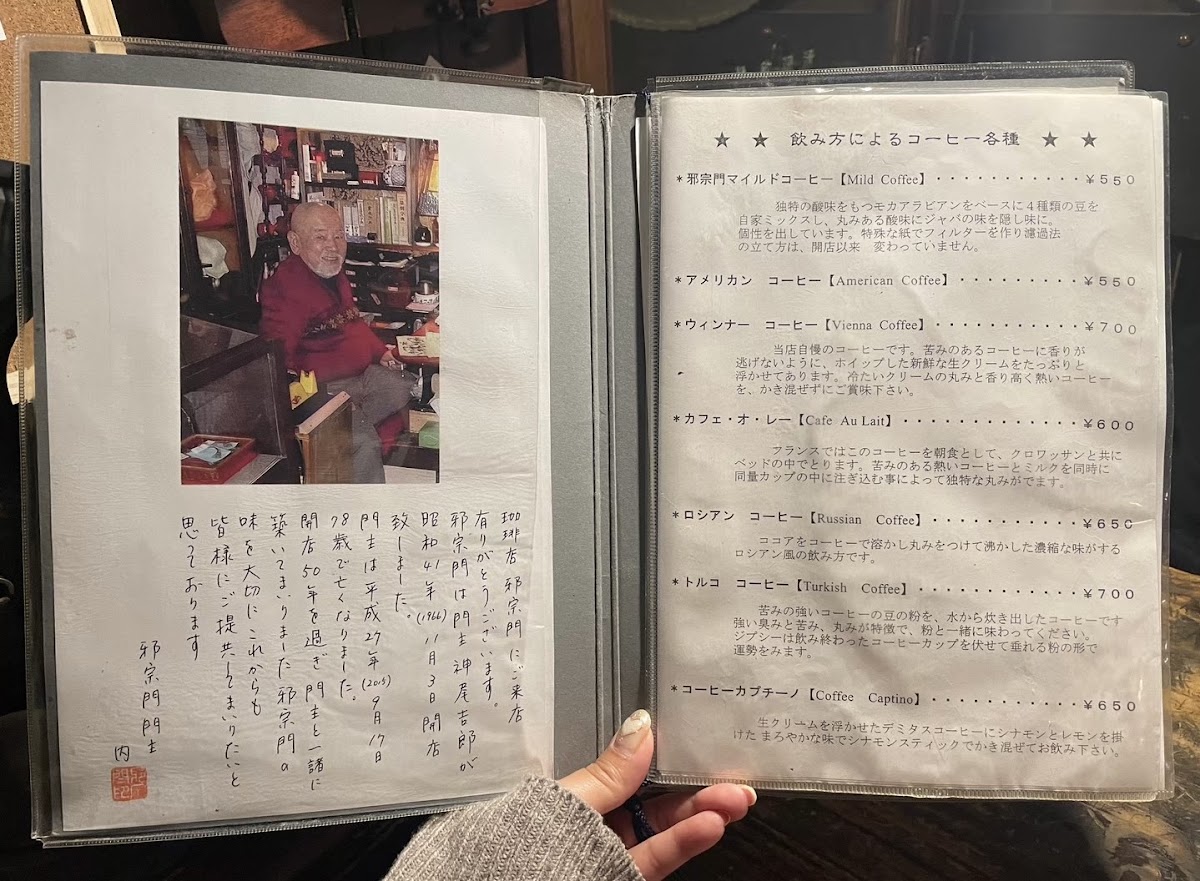 珈琲店 邪宗門にご来店
有りがとうございます。
邪宗門は門主 神尾吉郎が
昭和41年(1966)11月3日開店
致しました。
門主は平成27年(2015)9月17日
78歳で亡くなりました。
開店50年を過ぎ門主と一諸に
築いてまいりました邪宗門の
味を大切にこれからも
皆様にご提共してまいりたいと
思っております
邪宗門門主
内
★ ★ 飲み方によるコーヒー各種 ★ ★
*邪宗門マイルドコーヒー【Mild Coffee】・・・・・・・・・・・¥550
独特の酸味をもつモカアラビアンをベースに4種類の豆を
自家ミックスし、丸みある酸味にジャバの味を隠し味に。
個性を出しています。特殊な紙でフィルターを作り濾過法
の立て方は、開店以来 変わっていません。
*アメリカン コーヒー【American Coffee】・・・・・・・・・・¥550
*ウィンナー コーヒー【Vienna Coffee】・・・・・・・・・・・¥700
当店自慢のコーヒーです。苦みのあるコーヒーに香りが
逃げないように、ホイップした新鮮な生クリームをたっぷりと
浮かせてあります。冷たいクリームの丸みと香り高く熱いコーヒー
を、かき混ぜずにご賞味下さい。
*カフェ・オ・レー【Cafe Au Lait】・・・・・・・・・・・・・¥600
フランスではこのコーヒーを朝食として、クロワッサンと共に
ベッドの中でとります。苦みのある熱いコーヒーとミルクを同時に
同量カップの中に注ぎ込む事によって独特な丸みがでます。
*ロシアン コーヒー【Russian Coffee】・・・・・・・・・・・¥650
ココアをコーヒーで溶かし丸みをつけて沸かした濃縮な味がする
ロシアン風の飲み方です。
*トルコ コーヒー【Turkish Coffee】・・・・・・・・・・・・¥700
苦みの強いコーヒーの豆の粉を、水から炊き出したコーヒーです
強い臭みと苦み、丸みが特徴で、粉と一緒に味わってください。
ジプシーは飲み終わったコーヒーカップを伏せて垂れる粉の形で
運勢をみます。
*コーヒーカプチーノ【Coffee Captino】・・・・・・・・・・・¥650
生クリームを浮かせたデミタスコーヒーにシナモンとレモンを掛
けた まろやかな味でシナモンスティックでかき混ぜてお飲み下さい。